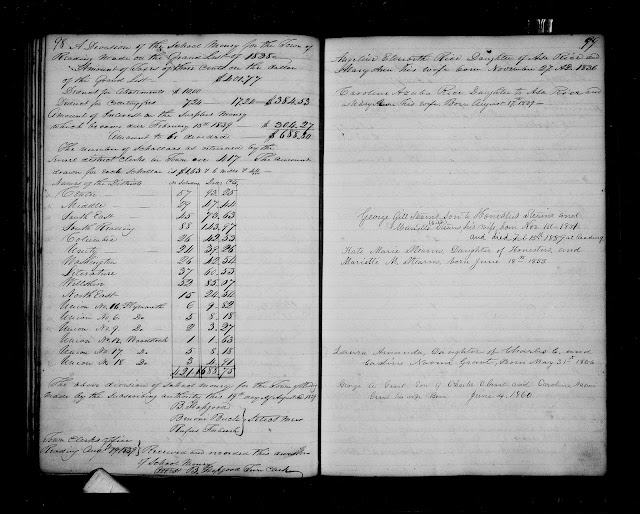 98 A Division of the School Money for the Town of
Reading Made on the Grand List of 1838
Amount of Taxes of three Cents on the dollar
of the Grand List $401,77
Deduct for abatements $10,00
Deduct for Courtesy fees 7.24 — 17.24 — $384.53
Amount of Interest on the Surplus Money
which becomes due February 15th 1839 — $304,27
Amount to be divided $688,80
The number of Schollars as returned by the
several district Clerks in Town are 417 The amount
drawn for each Schollar
Names of the Districts No Scholars Dolls Cts
Center — 57 93.25
Middle — 29 47.44
South East — 45 73.63
South Reading 88 143.97
Columbia 26 42.53
Unity 24 39.26
Washington 26 42.54
Literature 37 60.53
Wiltshire 52 85.07
North East 15 24.54
Union No. 16, Plymouth 6 9.82
Union No. 6 Do 5 8.18
Union No. 9 Do 2 3.27
Union No. 12 Woodstock 1 1.63
Union No. 17 Do 5 8.18
Union No. 18 Do 3 4.91
421 688,75
The above division of School Money for the Town of Reading
made by the Assessing authority this 19th day of August AD 1839
B. Hapgood
Select Men
Rufus
Town Clerks Office
Reading Aug 19 1839
Received and recorded this division
of School Money
Attest B. Hapgood Town Clerk
99
Angeline Elsworth Rice Daughter of Asa Rice and
Mary Ann his wife born November 27 AD. 1836
Caroline Azuba Rice Daughter to Asa Rice and
Mary Ann his wife Born August 17th 1839 —
George Gill Stearns Son to Honestus Stearns and
Mariette Stearns his wife born Nov 10 1851
and died Feb 12th 1889 at Reading
Kate Marie Stearns, Daughter of Honestus and
Mariette M. Stearns, born June 18th 1853
Laura Amanda, Daughter of Charles C. and
Caroline Naomi Grant, Born May 31st
George A Grant Son of Charles Grant and Caroline Naomi
Grant his wife Born June 4, 1860